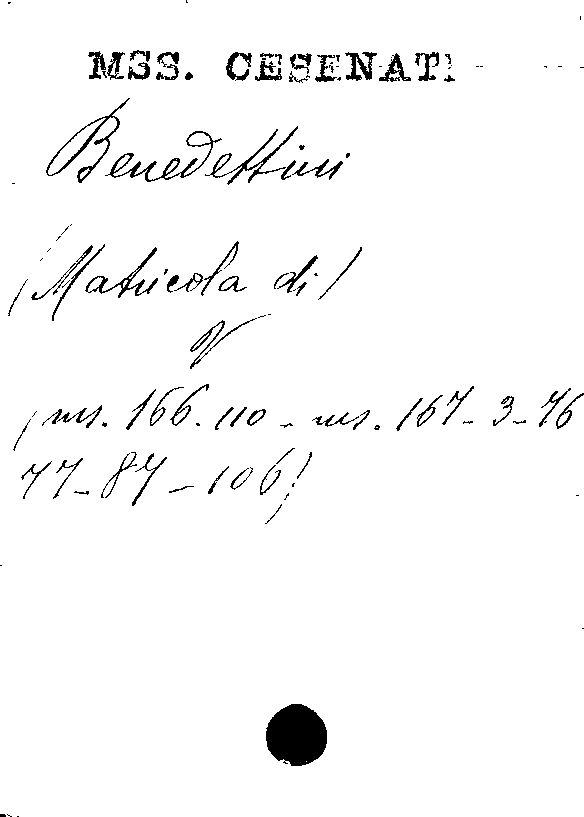 MSS. CESENATI
Benedettini
(Matricola di)
V
(ms. 166. 110 - ms. 167 - 3 - 76
77 - 87 - 106)